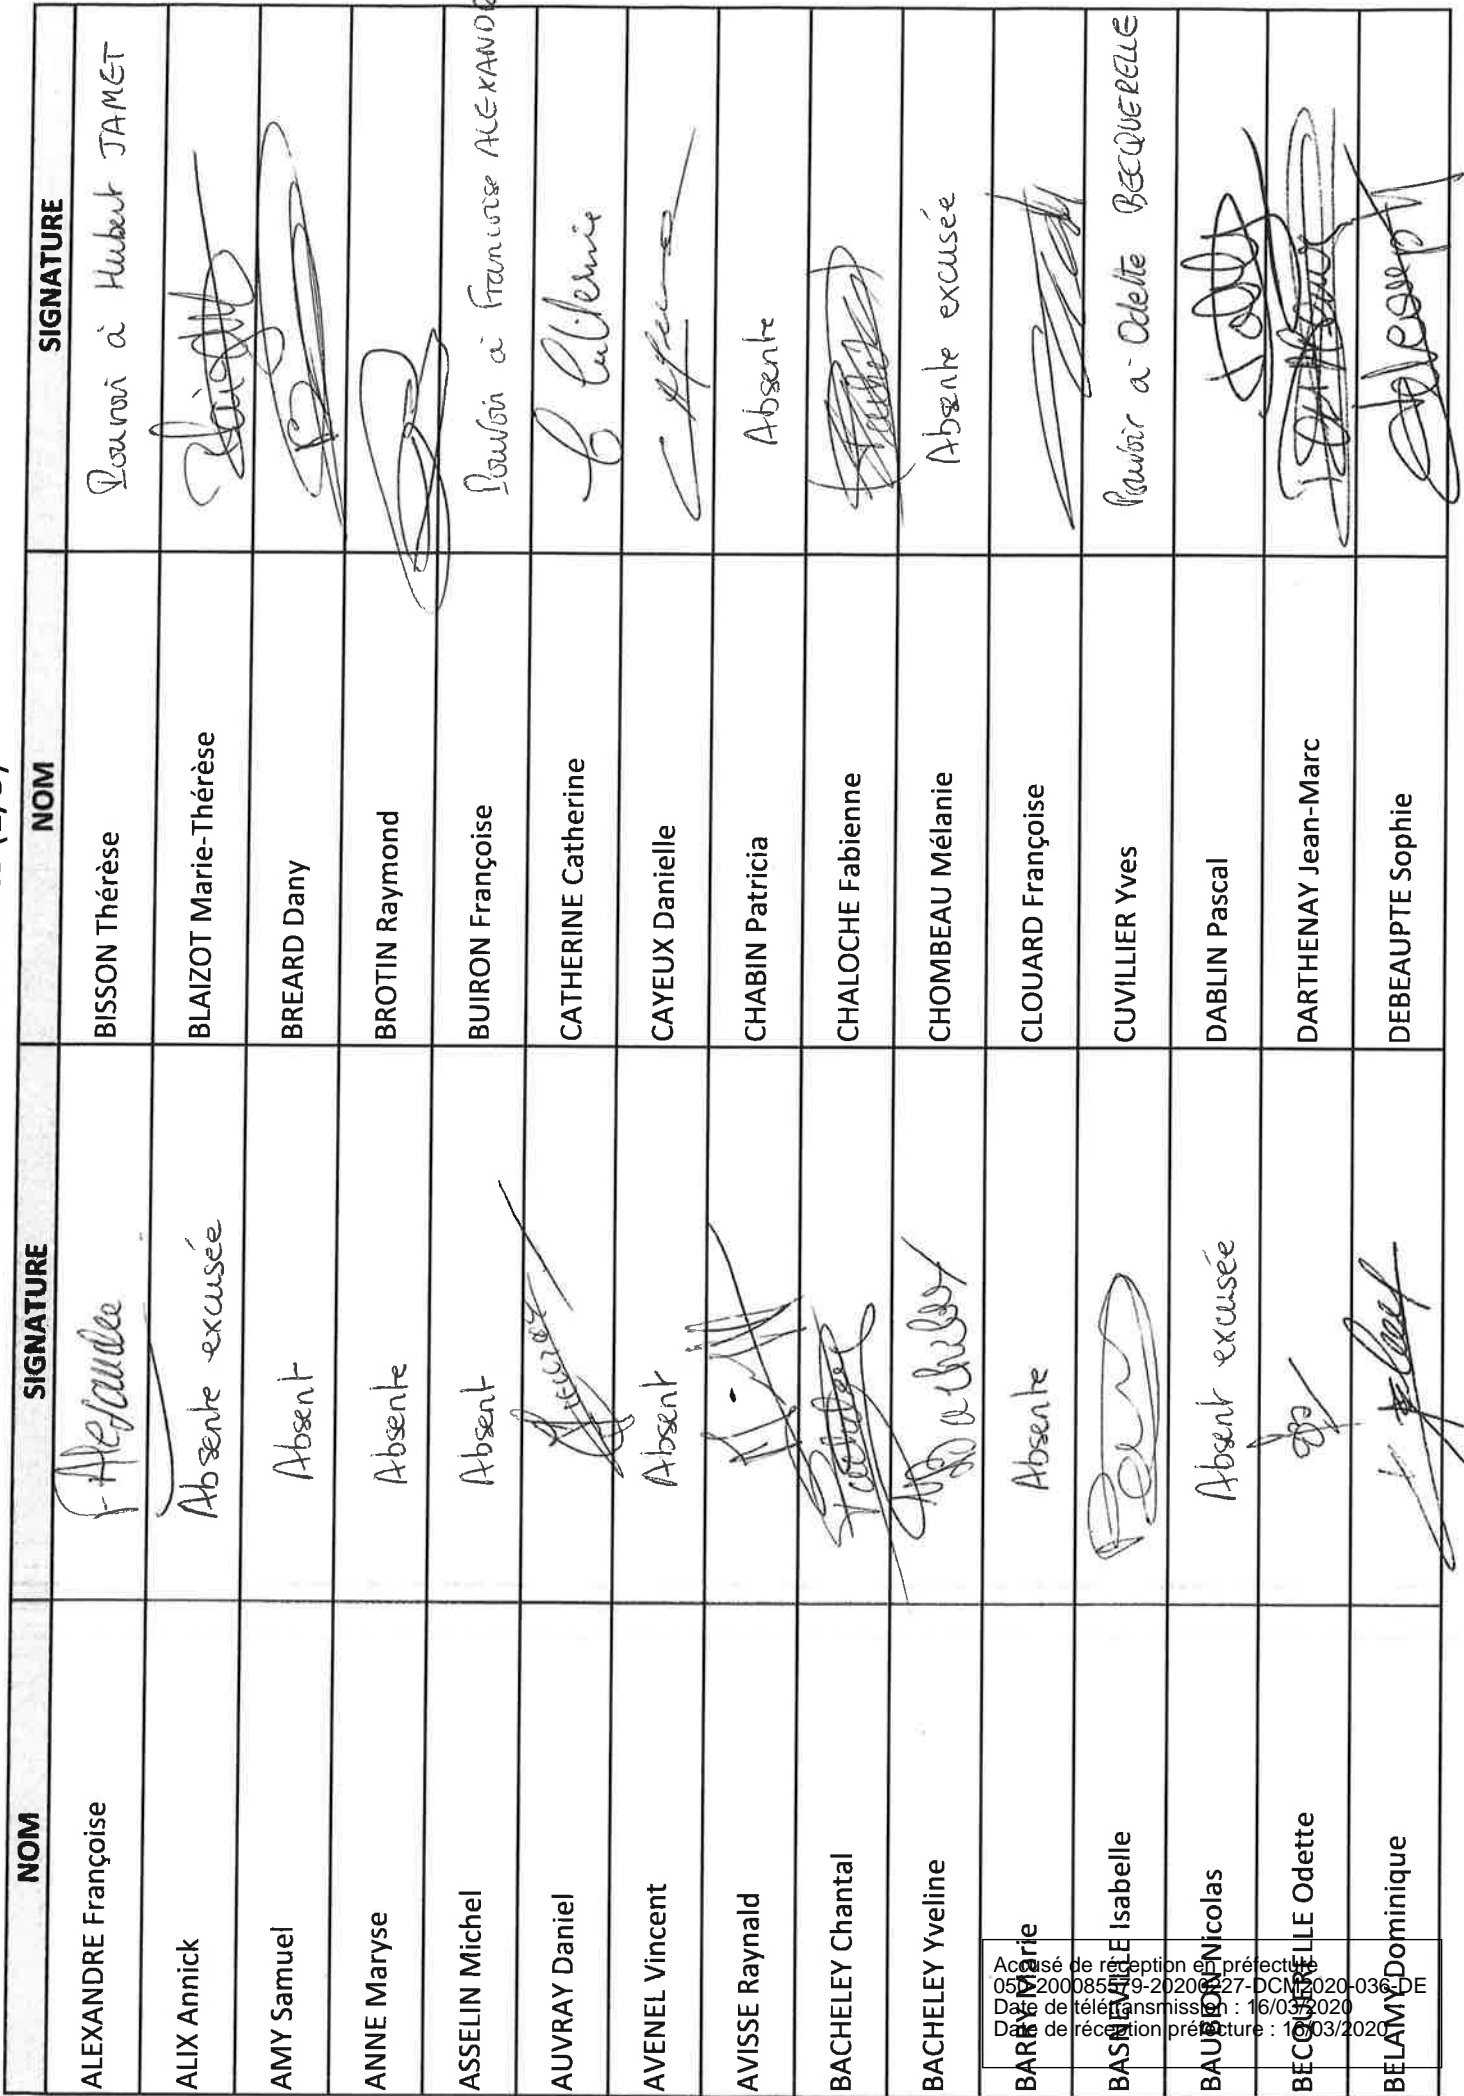 NOM SIGNATURE NOM SIGNATURE
ALEXANDRE Françoise F. Alexandre BISSON Thérèse Pouvoir à Hubert JAMET
ALIX Annick Absente excusée BLAIZOT Marie-Thérèse
AMY Samuel Absent BREARD Dany
ANNE Maryse Absente BROTIN Raymond
ASSELIN Michel Absent BUIRON Françoise Pouvoir à Françoise ALEXANDR
AUVRAY Daniel CATHERINE Catherine
AVENEL Vincent Absent CAYEUX Danielle
AVISSE Raynald CHABIN Patricia Absente
BACHELEY Chantal CHALOCHE Fabienne
BACHELEY Yveline CHOMBEAU Mélanie Absente excusée
BARRY Marie Absente CLOUARD Françoise
BASNEVILLE Isabelle CUVILLIER Yves Pouvoir à Odette BECQUERELLE
BAUBION Nicolas Absent excusée DABLIN Pascal
BECQUERELLE Odette DARTHENAY Jean-Marc
BELAMY Dominique DEBEAUPTE Sophie
Accusé de réception en préfecture
050-200085579-20200227-DCM2020-036-DE
Date de télétransmission : 16/03/2020
Date de réception préfecture : 16/03/2020